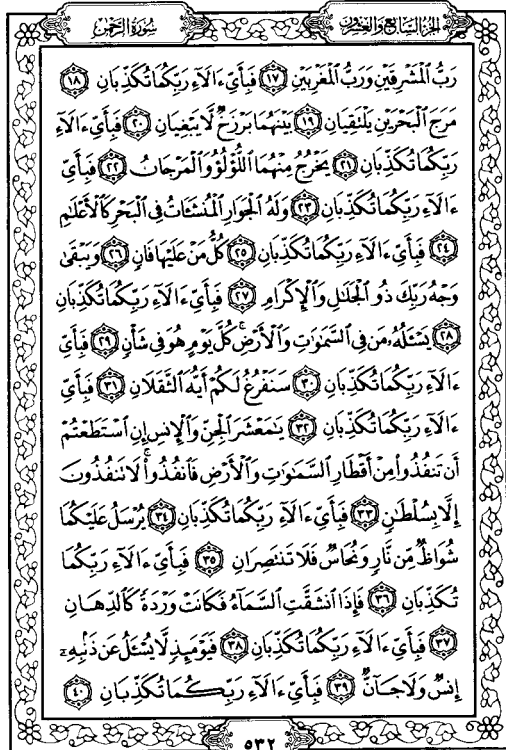 سُورَةُ الرَّحْمَٰن الجُزْءُ السَّابِعُ وَالعِشْرُونَ
رَبُّ ٱلْمَشْرِقَيْنِ وَرَبُّ ٱلْمَغْرِبَيْنِ ۝١٧ فَبِأَيِّ ءَالَآءِ رَبِّكُمَا تُكَذِّبَانِ ۝١٨
مَرَجَ ٱلْبَحْرَيْنِ يَلْتَقِيَانِ ۝١٩ بَيْنَهُمَا بَرْزَخٌ لَّا يَبْغِيَانِ ۝٢٠ فَبِأَيِّ ءَالَآءِ
رَبِّكُمَا تُكَذِّبَانِ ۝٢١ يَخْرُجُ مِنْهُمَا ٱللُّؤْلُؤُ وَٱلْمَرْجَانُ ۝٢٢ فَبِأَيِّ
ءَالَآءِ رَبِّكُمَا تُكَذِّبَانِ ۝٢٣ وَلَهُ ٱلْجَوَارِ ٱلْمُنشَـَٔاتُ فِى ٱلْبَحْرِ كَٱلْأَعْلَٰمِ
۝٢٤ فَبِأَيِّ ءَالَآءِ رَبِّكُمَا تُكَذِّبَانِ ۝٢٥ كُلُّ مَنْ عَلَيْهَا فَانٍ ۝٢٦ وَيَبْقَىٰ
وَجْهُ رَبِّكَ ذُو ٱلْجَلَٰلِ وَٱلْإِكْرَامِ ۝٢٧ فَبِأَيِّ ءَالَآءِ رَبِّكُمَا تُكَذِّبَانِ
۝٢٨ يَسْـَٔلُهُۥ مَن فِى ٱلسَّمَٰوَٰتِ وَٱلْأَرْضِ ۚ كُلَّ يَوْمٍ هُوَ فِى شَأْنٍ ۝٢٩ فَبِأَيِّ
ءَالَآءِ رَبِّكُمَا تُكَذِّبَانِ ۝٣٠ سَنَفْرُغُ لَكُمْ أَيُّهَ ٱلثَّقَلَانِ ۝٣١ فَبِأَيِّ
ءَالَآءِ رَبِّكُمَا تُكَذِّبَانِ ۝٣٢ يَٰمَعْشَرَ ٱلْجِنِّ وَٱلْإِنسِ إِنِ ٱسْتَطَعْتُمْ
أَن تَنفُذُوا۟ مِنْ أَقْطَارِ ٱلسَّمَٰوَٰتِ وَٱلْأَرْضِ فَٱنفُذُوا۟ ۚ لَا تَنفُذُونَ
إِلَّا بِسُلْطَٰنٍ ۝٣٣ فَبِأَيِّ ءَالَآءِ رَبِّكُمَا تُكَذِّبَانِ ۝٣٤ يُرْسَلُ عَلَيْكُمَا
شُوَاظٌ مِّن نَّارٍ وَنُحَاسٌ فَلَا تَنتَصِرَانِ ۝٣٥ فَبِأَيِّ ءَالَآءِ رَبِّكُمَا
تُكَذِّبَانِ ۝٣٦ فَإِذَا ٱنشَقَّتِ ٱلسَّمَآءُ فَكَانَتْ وَرْدَةً كَٱلدِّهَانِ
۝٣٧ فَبِأَيِّ ءَالَآءِ رَبِّكُمَا تُكَذِّبَانِ ۝٣٨ فَيَوْمَئِذٍ لَّا يُسْـَٔلُ عَن ذَنۢبِهِۦٓ
إِنسٌ وَلَا جَآنٌّ ۝٣٩ فَبِأَيِّ ءَالَآءِ رَبِّكُمَا تُكَذِّبَانِ ۝٤٠
٥٣٢